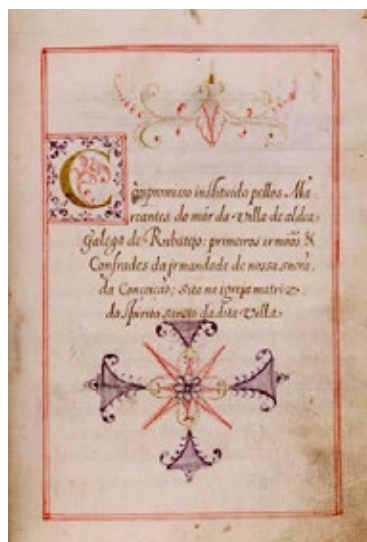 Compromisso instituido pellos Ma
reantes do mar da villa de aldea
Galega de Rubatejo: primeiros irmãos &
Confrades da jrmandade de nossa snora.
da Conceicaõ; sita na igreja matriz
do spirito sancto da dita villa.